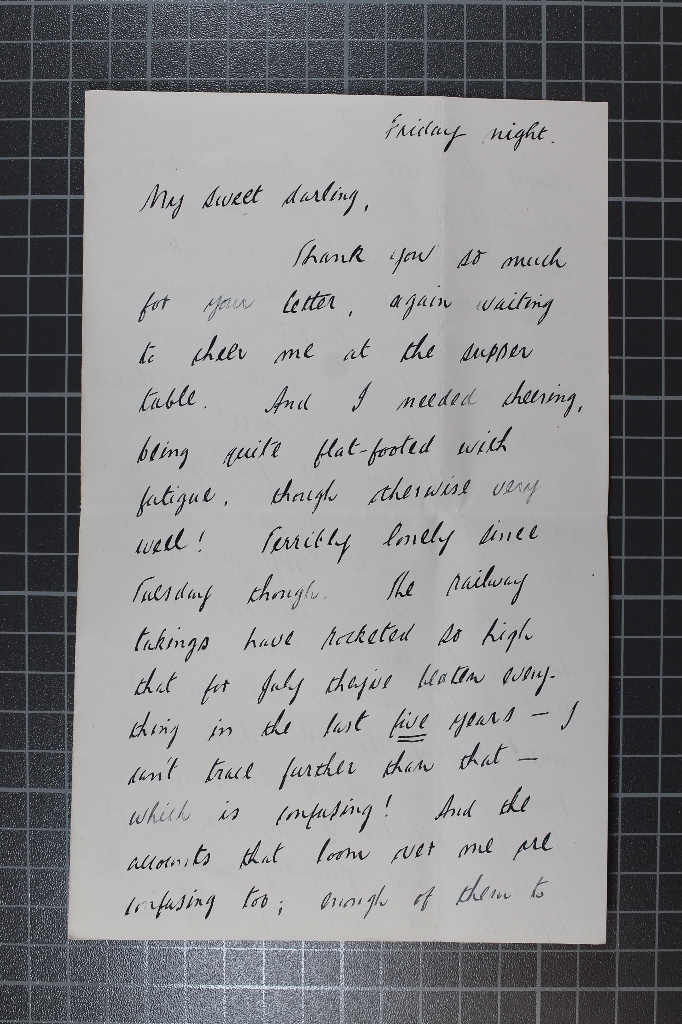 Friday night.
My sweet darling,
Thank you so much
for your letter, again waiting
to cheer me at the supper
table. And I needed cheering,
being quite flat-footed with
fatigue, though otherwise very
well! Terribly lonely since
Tuesday though. The railway
takings have rocketed so high
that for July they've beaten every-
thing in the last five years – I
can't trace further than that –
which is confusing! And the
accounts that loom over me are
confusing too; enough of them to